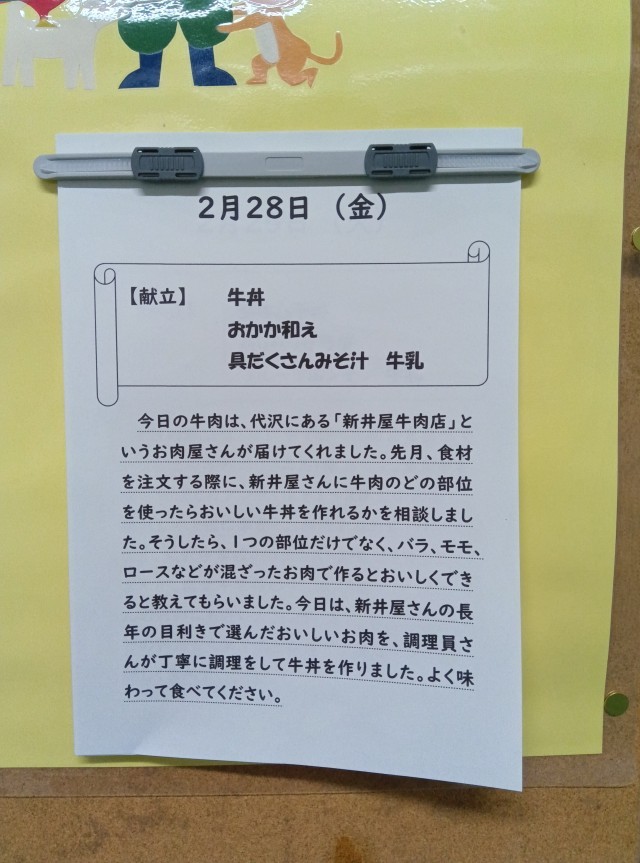 2月28日（金）
【献立】 牛丼
おかか和え
具だくさんみそ汁 牛乳
今日の牛肉は、代沢にある「新井屋牛肉店」と
いうお肉屋さんが届けてくれました。先月、食材
を注文する際に、新井屋さんに牛肉のどの部位
を使ったらおいしい牛丼を作れるかを相談しまし
た。そうしたら、1つの部位だけでなく、バラ、モモ、
ロースなどが混ざったお肉で作るとおいしくでき
ると教えてもらいました。今日は、新井屋さんの長
年の目利きで選んだおいしいお肉を、調理員さ
んが丁寧に調理をして牛丼を作りました。よく味
わって食べてください。